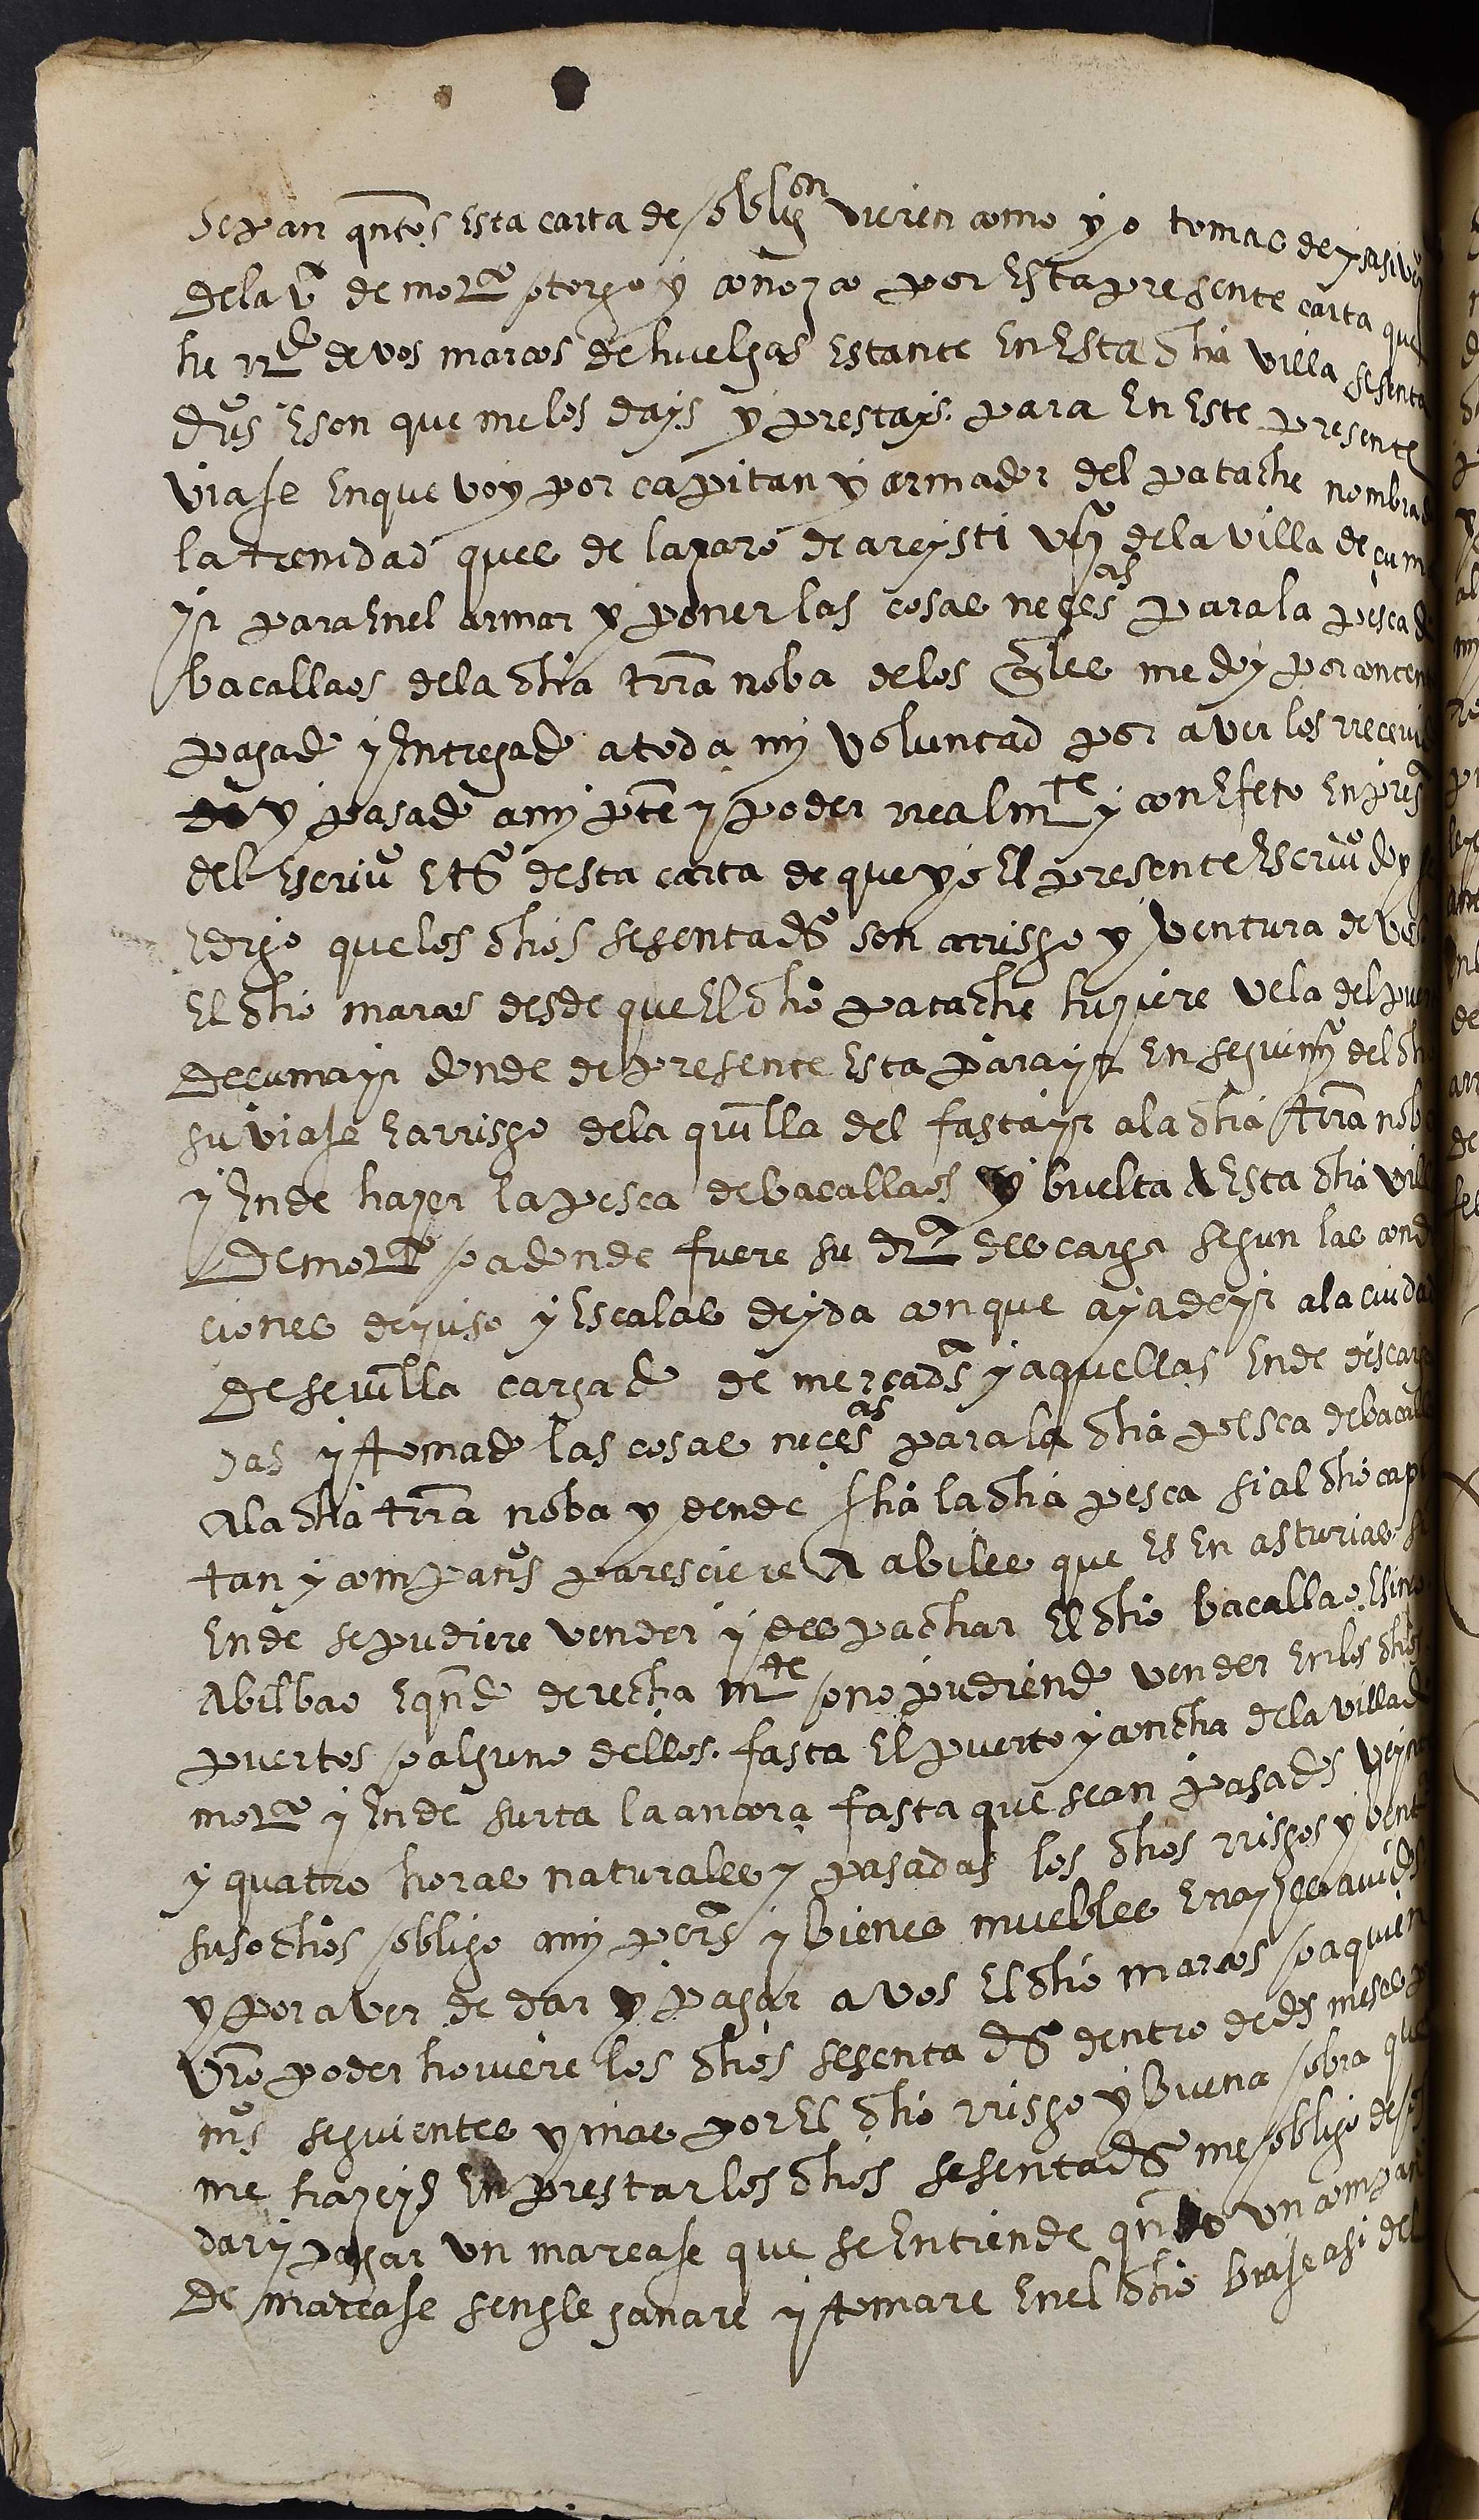 Sepan qntos esta carta de oblign vieren como yo tomas de ysasi vz
dela va de motco otorgo y conozco por esta presente carta que
he rrdo de vos marcos de huelgas estante en esta dha villa sesenta
dus e son que me los days y prestays para en este presente
viaje en que voy por capitan y armador del patache nombrado
la trenidad ques de lazaro de areysti vzo dela villa de çuma
ya para en el armar y poner las cosas neçesas para la pesca de
bacallaos dela dha trra noba delos qles me doy por content
pagado y entregado a toda my voluntad por aver los rreceui
do y pasado a my pte y poder rrealmte y con efeto en pres
del escriuo e tos desta carta de que yo el presente escriuo doy fe
e digo que los dhos sesenta ds son a rrisgo y ventura de vos
el dho marcos desde que el dho patache hiziere vela del puer
de çumaya donde de presente esta para yr en seguimyo del dho
su viaje e a rrisgo dela quilla del fasta yr ala dha trra noba
y ende hazer la pesca de bacallaos y buelta a esta dha villa
de motco o adonde fuere su dra descarga segun las condi
ciones de yuso y escalas de yda con que aya de yr ala ciudad
de seuilla cargado de mercadas y aquellas ende descarga
das y tomado las cosas neçesas para la dha pesca de bacalla
ala dha trra noba y dende fha la dha pesca si al dho capi
tan y companos paresciere a abiles que es en asturias si
ende se pudiere vender y despachar el dho bacallao e sino
a bilbao e qndo derechamte o no pudiendo vender en los dhos
puertos o alguno dellos fasta el puerto y concha dela villa de
motco y ende surta la ancora fasta que sean pasados veynte
y quatro horas naturales y pasadas los dhos rrisgos y vent
susodhos obligo a my persa y bienes muebles e rrayzes avidos
y por aver de dar y pagar a vos el dho marcos o a quien
vro poder houiere los dhos sesenta ds dentro de dos meses pr
mos seguientes y mas por el dho rrisgo y buena obra que
me hazeys en prestar los dhos sesenta ds me obligo de os
dar y pagar un mareaje que se entiende qnto un compan
de mareaje sengle ganare y tomare en el dho biaje asi del